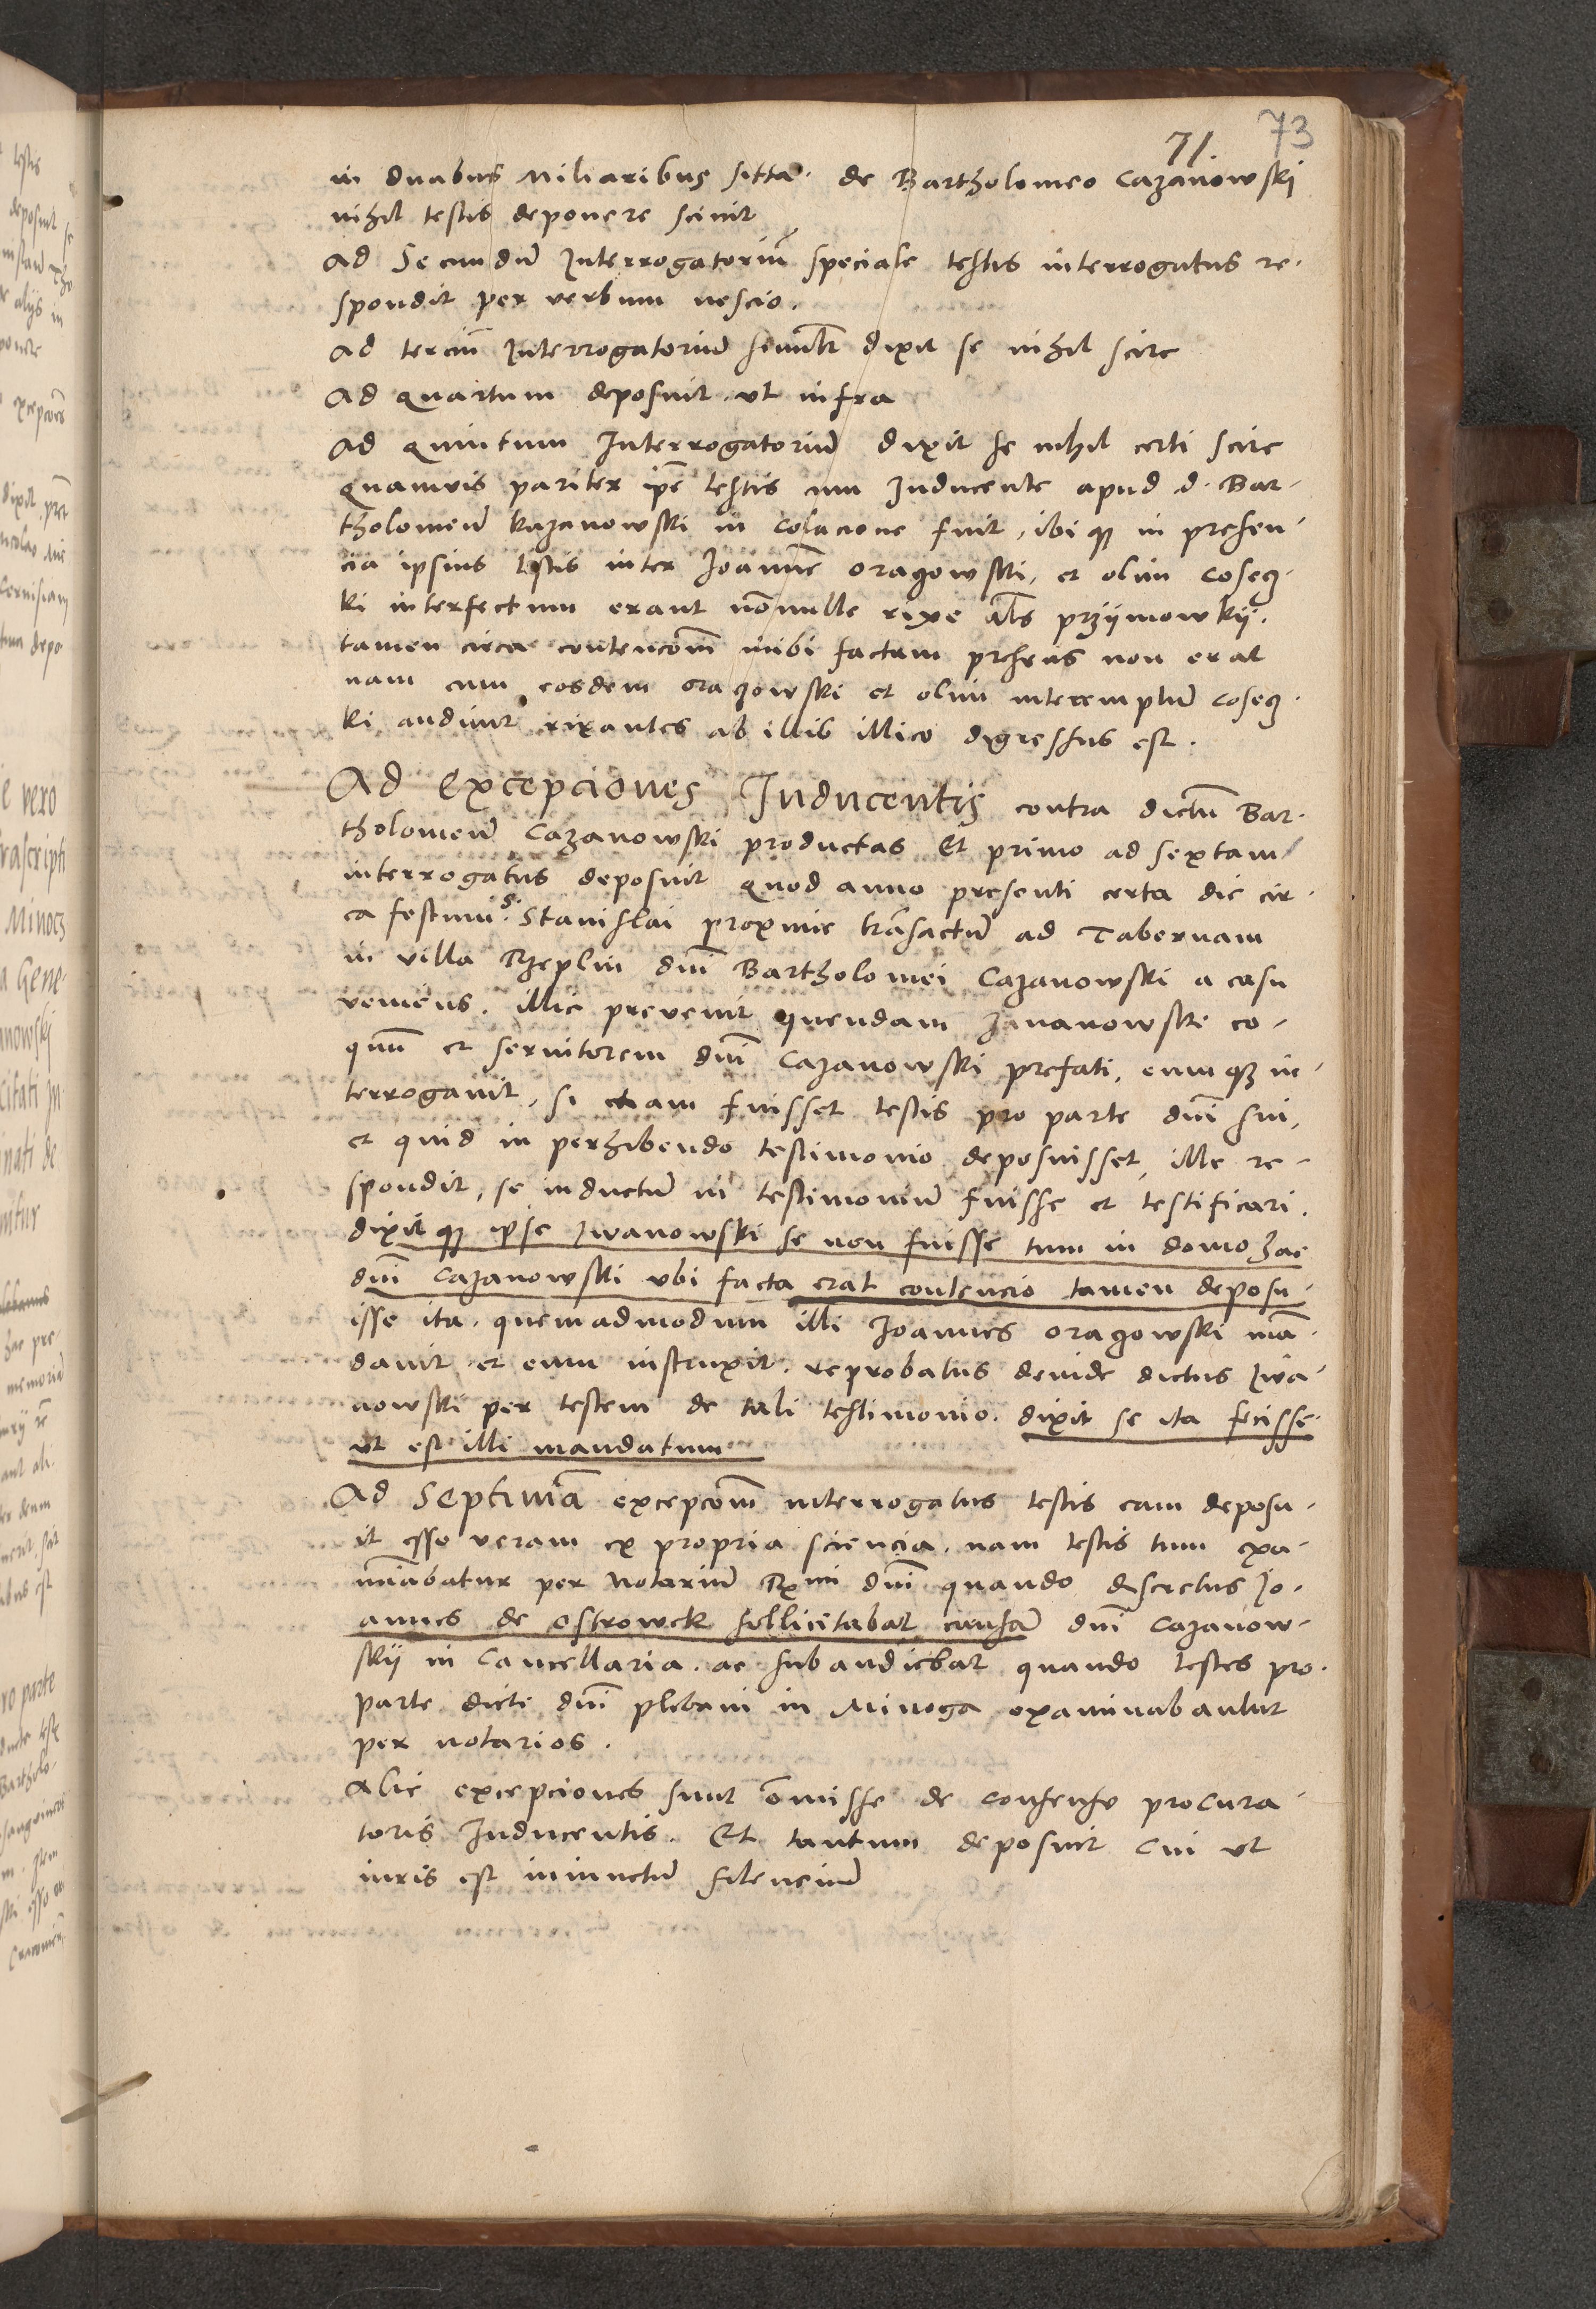 73
71.
in duabus Miliaribus sitta. de Bartholomeo Cazanowski
nihil testis deponere scivit
Ad Secundū Interrogatoriū speciale testis interrogatus re-
spondit per verbum nescio.
Ad terciū Interrogatoriū simīlr dixit se nihil scire
Ad Quartum deposuit ut infra
Ad Quintum Interrogatoriū dixit se nihil certi scire
Quamvis pariter ip̄e testis cum Inducente apud d. Bar-
tholomeū Kazanowski in Colacione fuit, ibiq3 in presen-
cia ipsius testis inter Joannē oragowski, et olim Coseg-
ki interfectum erant nōnulle rixe als przijmowkij.
tamen circa contencōm inibi factam presens non erat
nam cum eosdem oragowski et olim interemptū Coseg-
ki audivit rixantes ab illis illico digressus est.
Ad Excepciones Inducentis contra dictū Bar-
tholomeū Cazanowski productas Et primo ad sextam
interrogatus deposuit Quod anno presenti certa die cir-
ca festum S. Stanislai proxime trāsactū ad Tabernam
in villa Rzeplin dnī Bartholomei Cazanowski a casu
veniens. illic prevenit quendam Jwanowski co-
quū et servitorem dnī Cazanowski prefati, eumq3 in-
terrogavit, si etiam fuisset testis pro parte dnī sui,
et quid in perhibendo testimonio deposuisset, ille re-
spondit, se inductū in testimoniū fuisse et testificari.
dixitq3 ipse Jwanowski se non fuisse tum in domo hac
dnī Cazanowski ubi facta erat contencio tamen deposu-
isse ita. quemadmodum illi Joannes oragowski mā-
davit et eum instruxit. reprobatus deinde dictus Jwa-
nowski per testem de tali testimonio. dixit se ita fecisse
ut est illi mandatum
Ad Septimā excepcōm interrogatus testis eam deposu-
it esse veram ex propria sciencia. nam testis tum exa-
mīabatur per Notariū Rmi dnī quando discretus Jo-
annes de Ostrowek sollicitabat causā dnī Cazanow-
skij in Cancellaria. ac subaudiebat quando testes pro
parte dicti dnī plebani in Minoga examinabantur
per notarios.
Alie excepciones sunt ōmisse de consensu procura-
toris Inducentis. Et tantum deposuit Cui ut
iuris est iniunctū silenciū